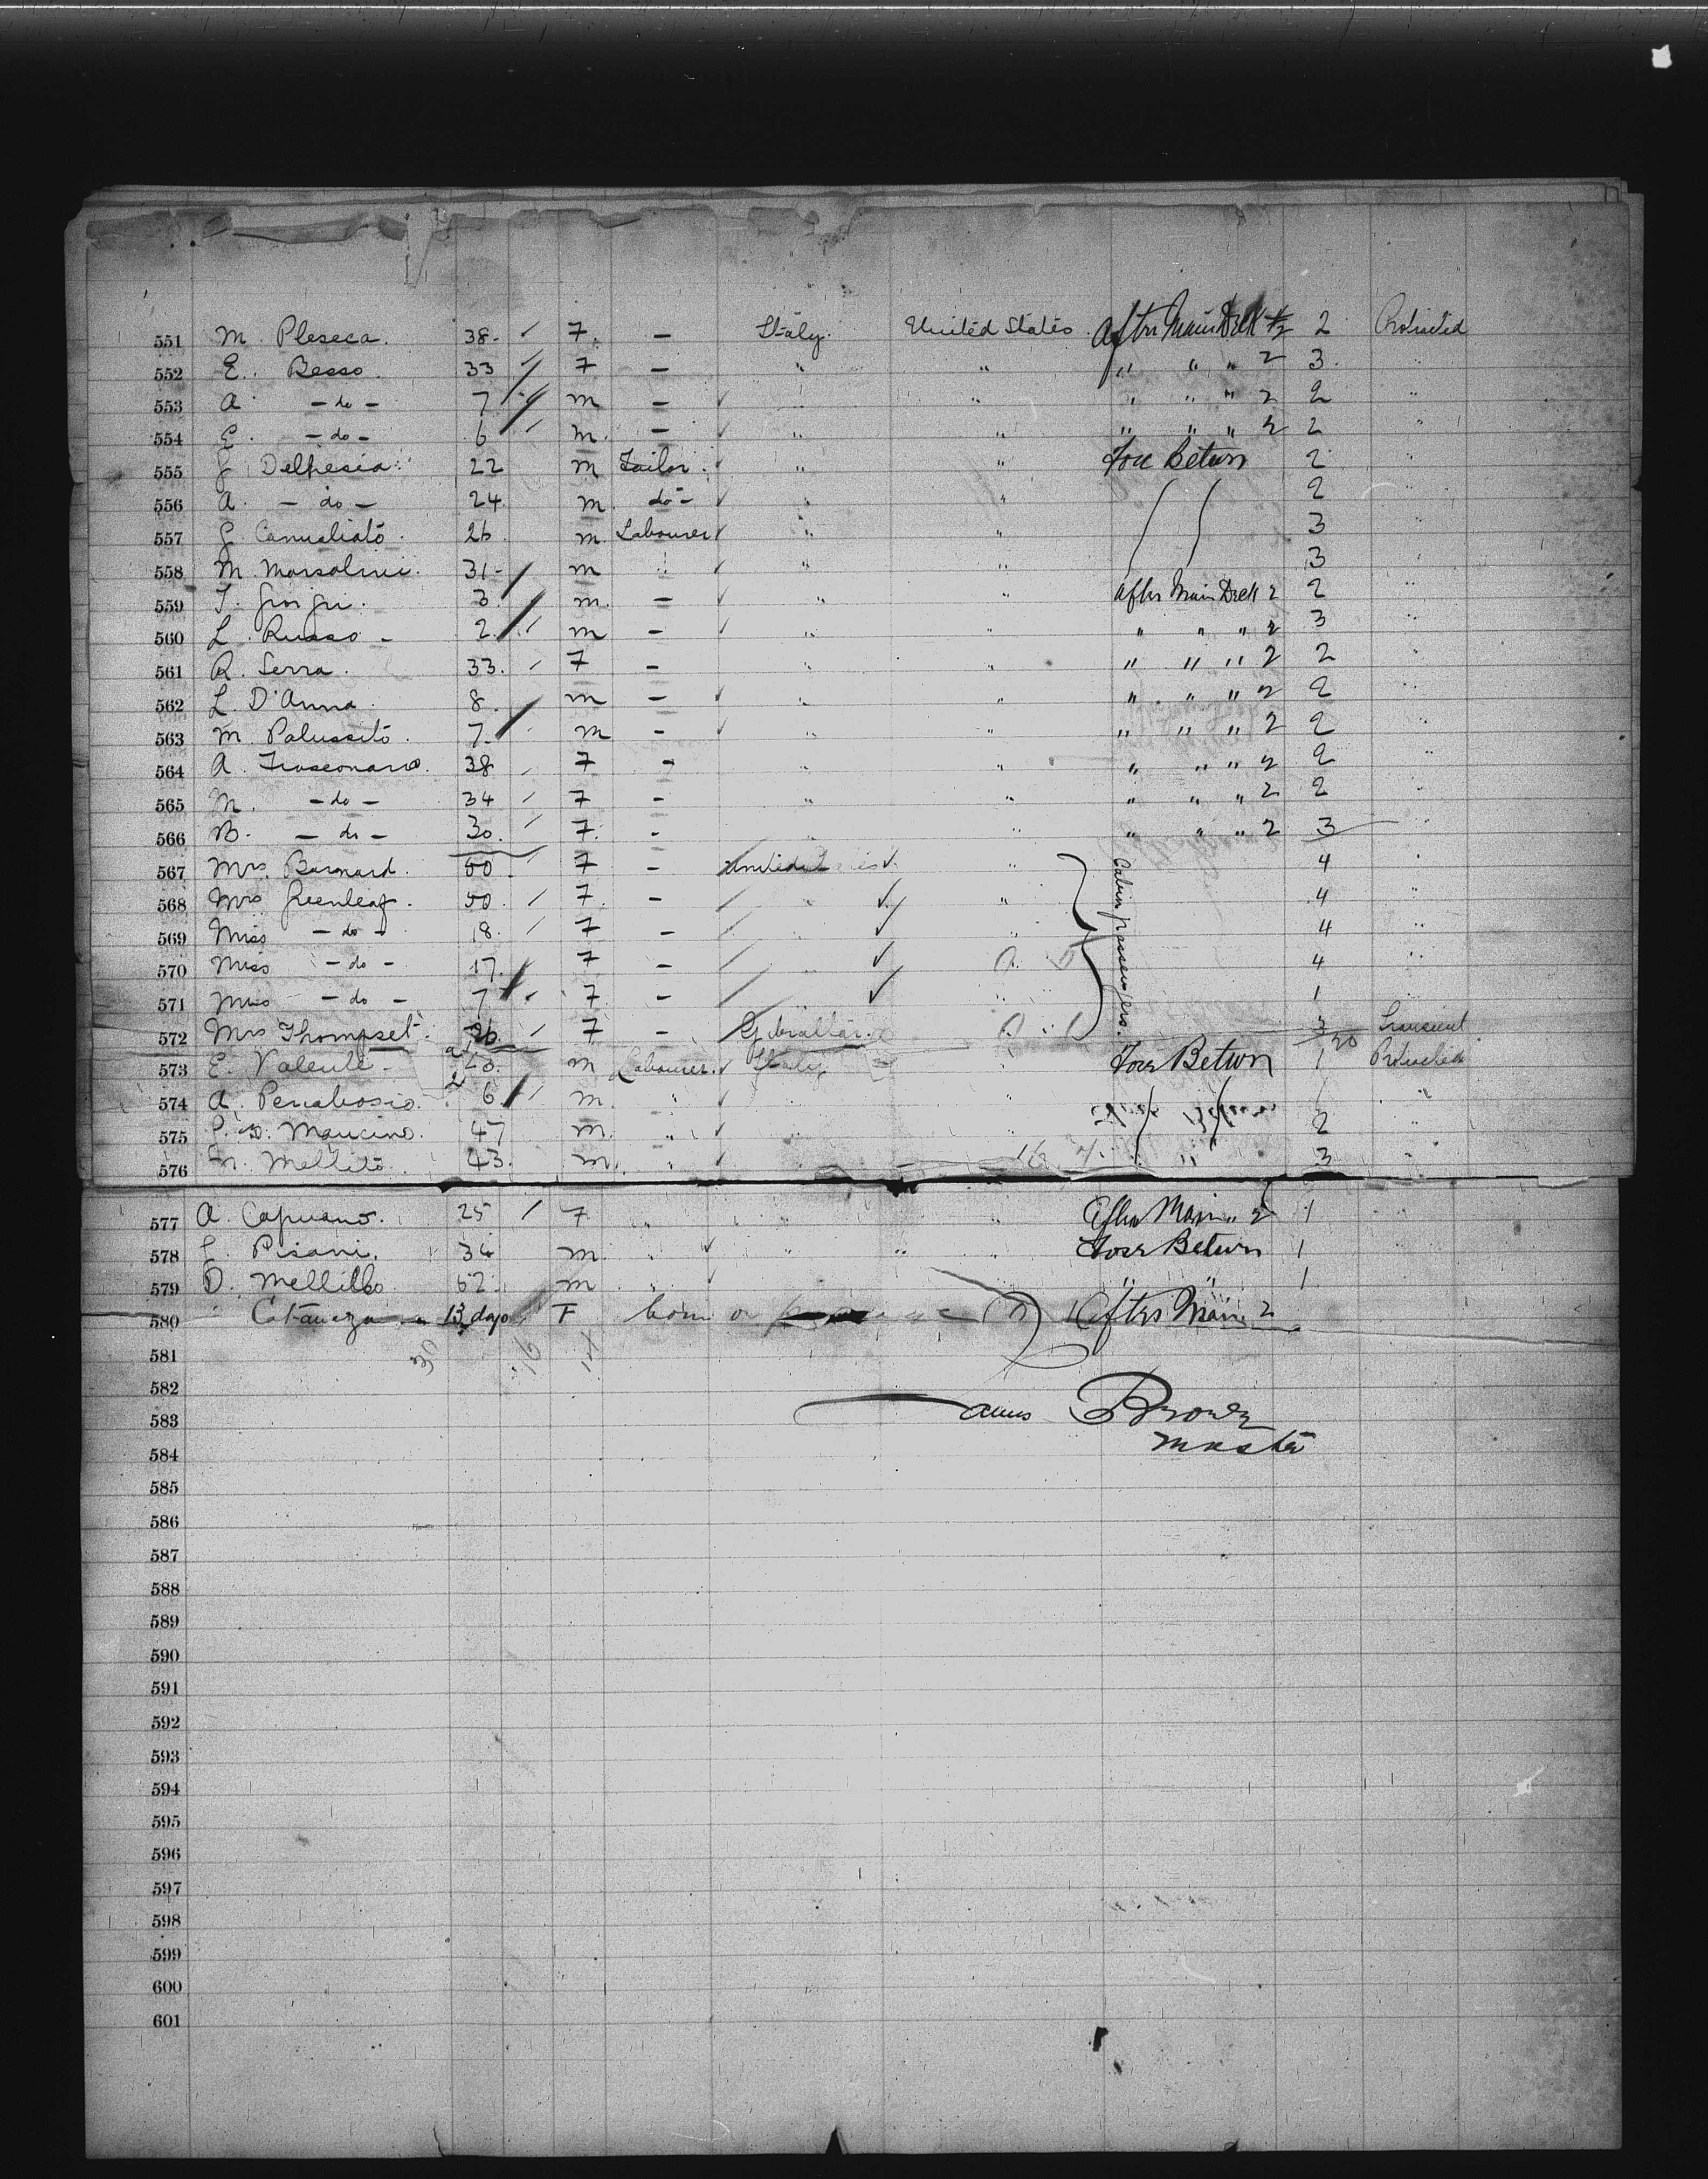 551 M. Pleseca. 38. / F. — Italy. United States After Main Deck 2 2 Protracted
552 E. Besso. 33 / F — " " " " " 2 3. "
553 A. – do – 7 / m — ✓ " " " " " 2 2 "
554 E. – do – 6 / m. — ✓ " " " " " 2 2 "
555 G. Delpesia. 22 m Tailor. ✓ " " Fore Betwn 2 "
556 A. – do – 24. m. do – ✓ " " 2 "
557 G. 26. m. Labourer ✓ " " 3 "
558 M. Marsalini. 31 – m " ✓ " " 3 "
559 3. m. — ✓ " " After Main Deck 2 2 "
560 L. Russo – 2. / m — ✓ " " " " " 2 3 "
561 R. Serra. 33. / F — " " " " " 2 2 "
562 L. D'Anna. 8. m — ✓ " " " " " 2 2 "
563 M. Palussito. 7. m — ✓ " " " " " 2 2 "
564 A. 38 / F — " " " " " 2 2 "
565 M. – do – 34 / F — " " " " " 2 2 "
566 B. – do – 30. / F. — " " " " " 2 3 "
567 Mrs. Barnard. 50. / F — United ✓ " Cabin passengers. 4 "
568 Mrs Greenleaf. 50. / F. — " ✓ " 4 "
569 Miss – do – 18. / F — " ✓ " 4 "
570 Miss – do – 17. / F — " ✓ 4 "
571 Miss – do – 7 / F. — " ✓ " 1 "
572 Mrs Thompset. 26. / F — Gibraltar. 3 Transient
573 E. Valente – m Labourer. ✓ Italy " Fore Betwn 1 Protracted
574 A. 6 / m. " ✓ " " 1 "
575 Mancino. 47 m. " ✓ 2 "
576 Mellito. 43. m. " ✓ " " 3 "
577 A. Capuano. 25 / F " " " After Main " 2 1
578 Pisani. 34 m. " ✓ " " " Fore Betwn 1
579 D. Mellillo. 62. m " ✓ " " 1
580 Cataneza 13 days / F born After Main 2
581
582
583 James Brown
584 Master
585
586
587
588
589
590
591
592
593
594
595
596
597
598
599
600
601